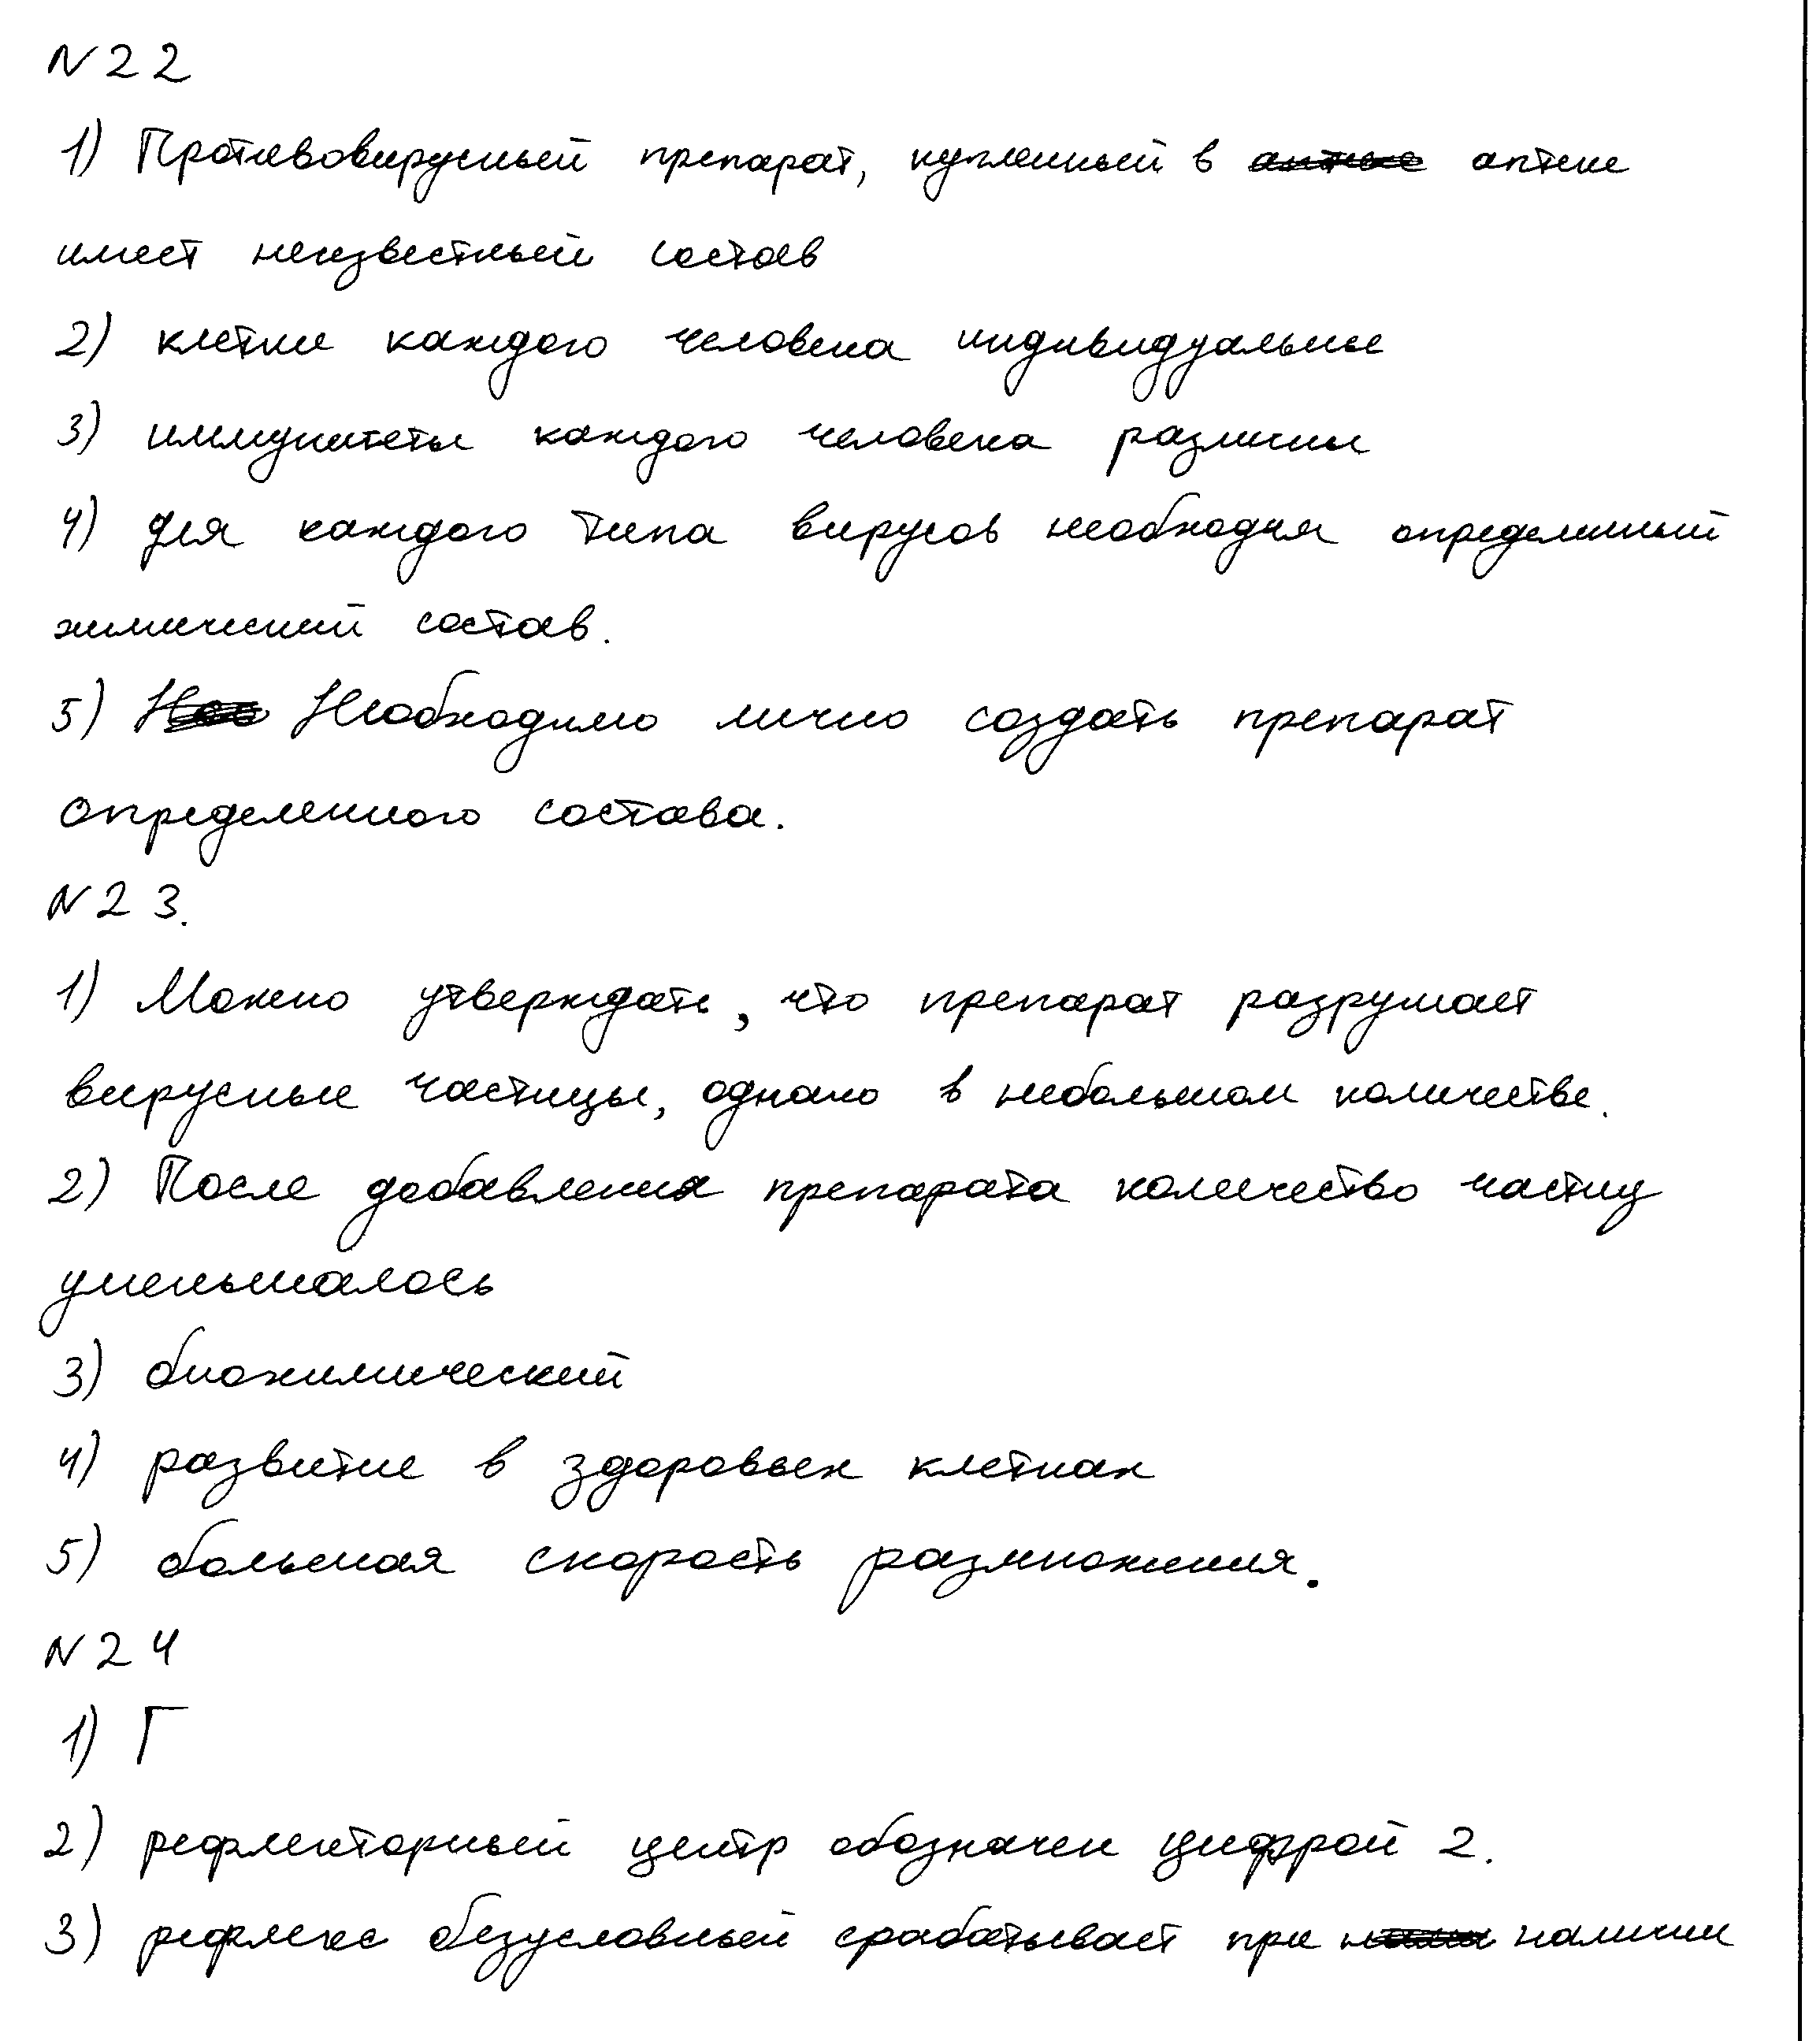 N22
1) Противовирусный препарат, купленный в аптеке
имеет неизвестный состав
2) клетки каждого человека индивидуальны
3) иммунитеты каждого человека различны
4) для каждого типа вирусов необходим определенный
химический состав.
5) Необходимо лично создать препарат
определенного состава.
N23.
1) Можно утверждать, что препарат разрушает
вирусные частицы, однако в небольшом количестве.
2) После добавления препарата количество частиц
уменьшалось
3) биохимический
4) развитие в здоровых клетках
5) большая скорость размножения.
N24
1) Г
2) рефлекторный центр обозначен цифрой 2.
3) рефлекс безусловный срабатывает при наличии